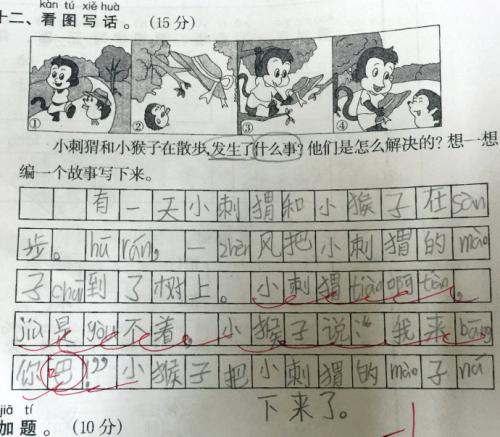 kàn tú xiě huà
十二、看图写话。(15分)
① ② ③ ④
小刺猬和小猴子在散步,发生了什么事?他们是怎么解决的?想一想,
编一个故事写下来。
有一天小刺猬和小猴子在sàn
步。hū rán,一zhèn风把小刺猬的mào
子chuī到了树上。小刺猬tiào啊tiào,
jiù是gòu不着。小猴子说:“我来bāng
你吧!”小猴子把小刺猬的mào子ná
下来了。
jiā tí
加题。(10分)